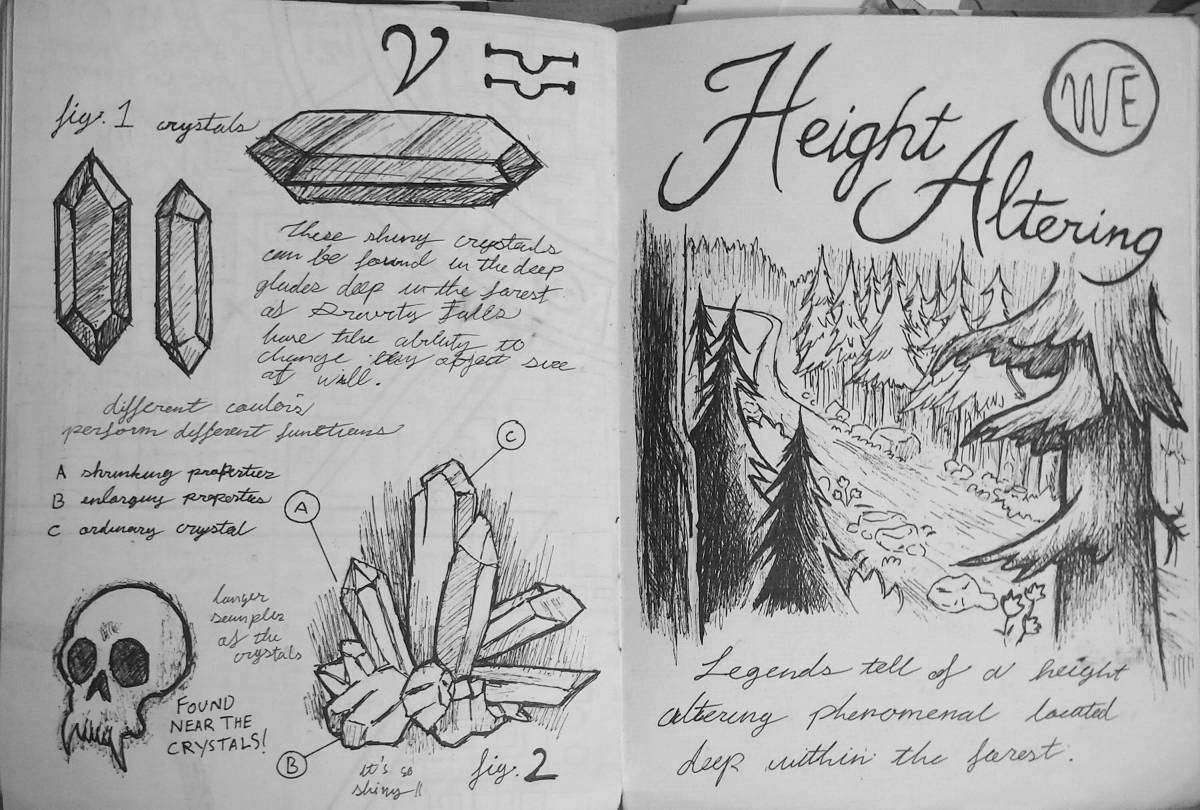 fig. 1 crystals
These shiny crystals
can be found in the deep
glades deep in the forest
of Gravity Falls
have the ability to
change any object size
at will.
different coulors
perform different functions
A shrinking properties
B enlarguy properties
C ordinary crystal
C
A
larger
samples
of the
crystals
FOUND
NEAR THE
CRYSTALS!
B
it's so
shiny!!
fig. 2
WE
Height
Altering
Legends tell of a height
altering phenomenal located
deep within the forest.